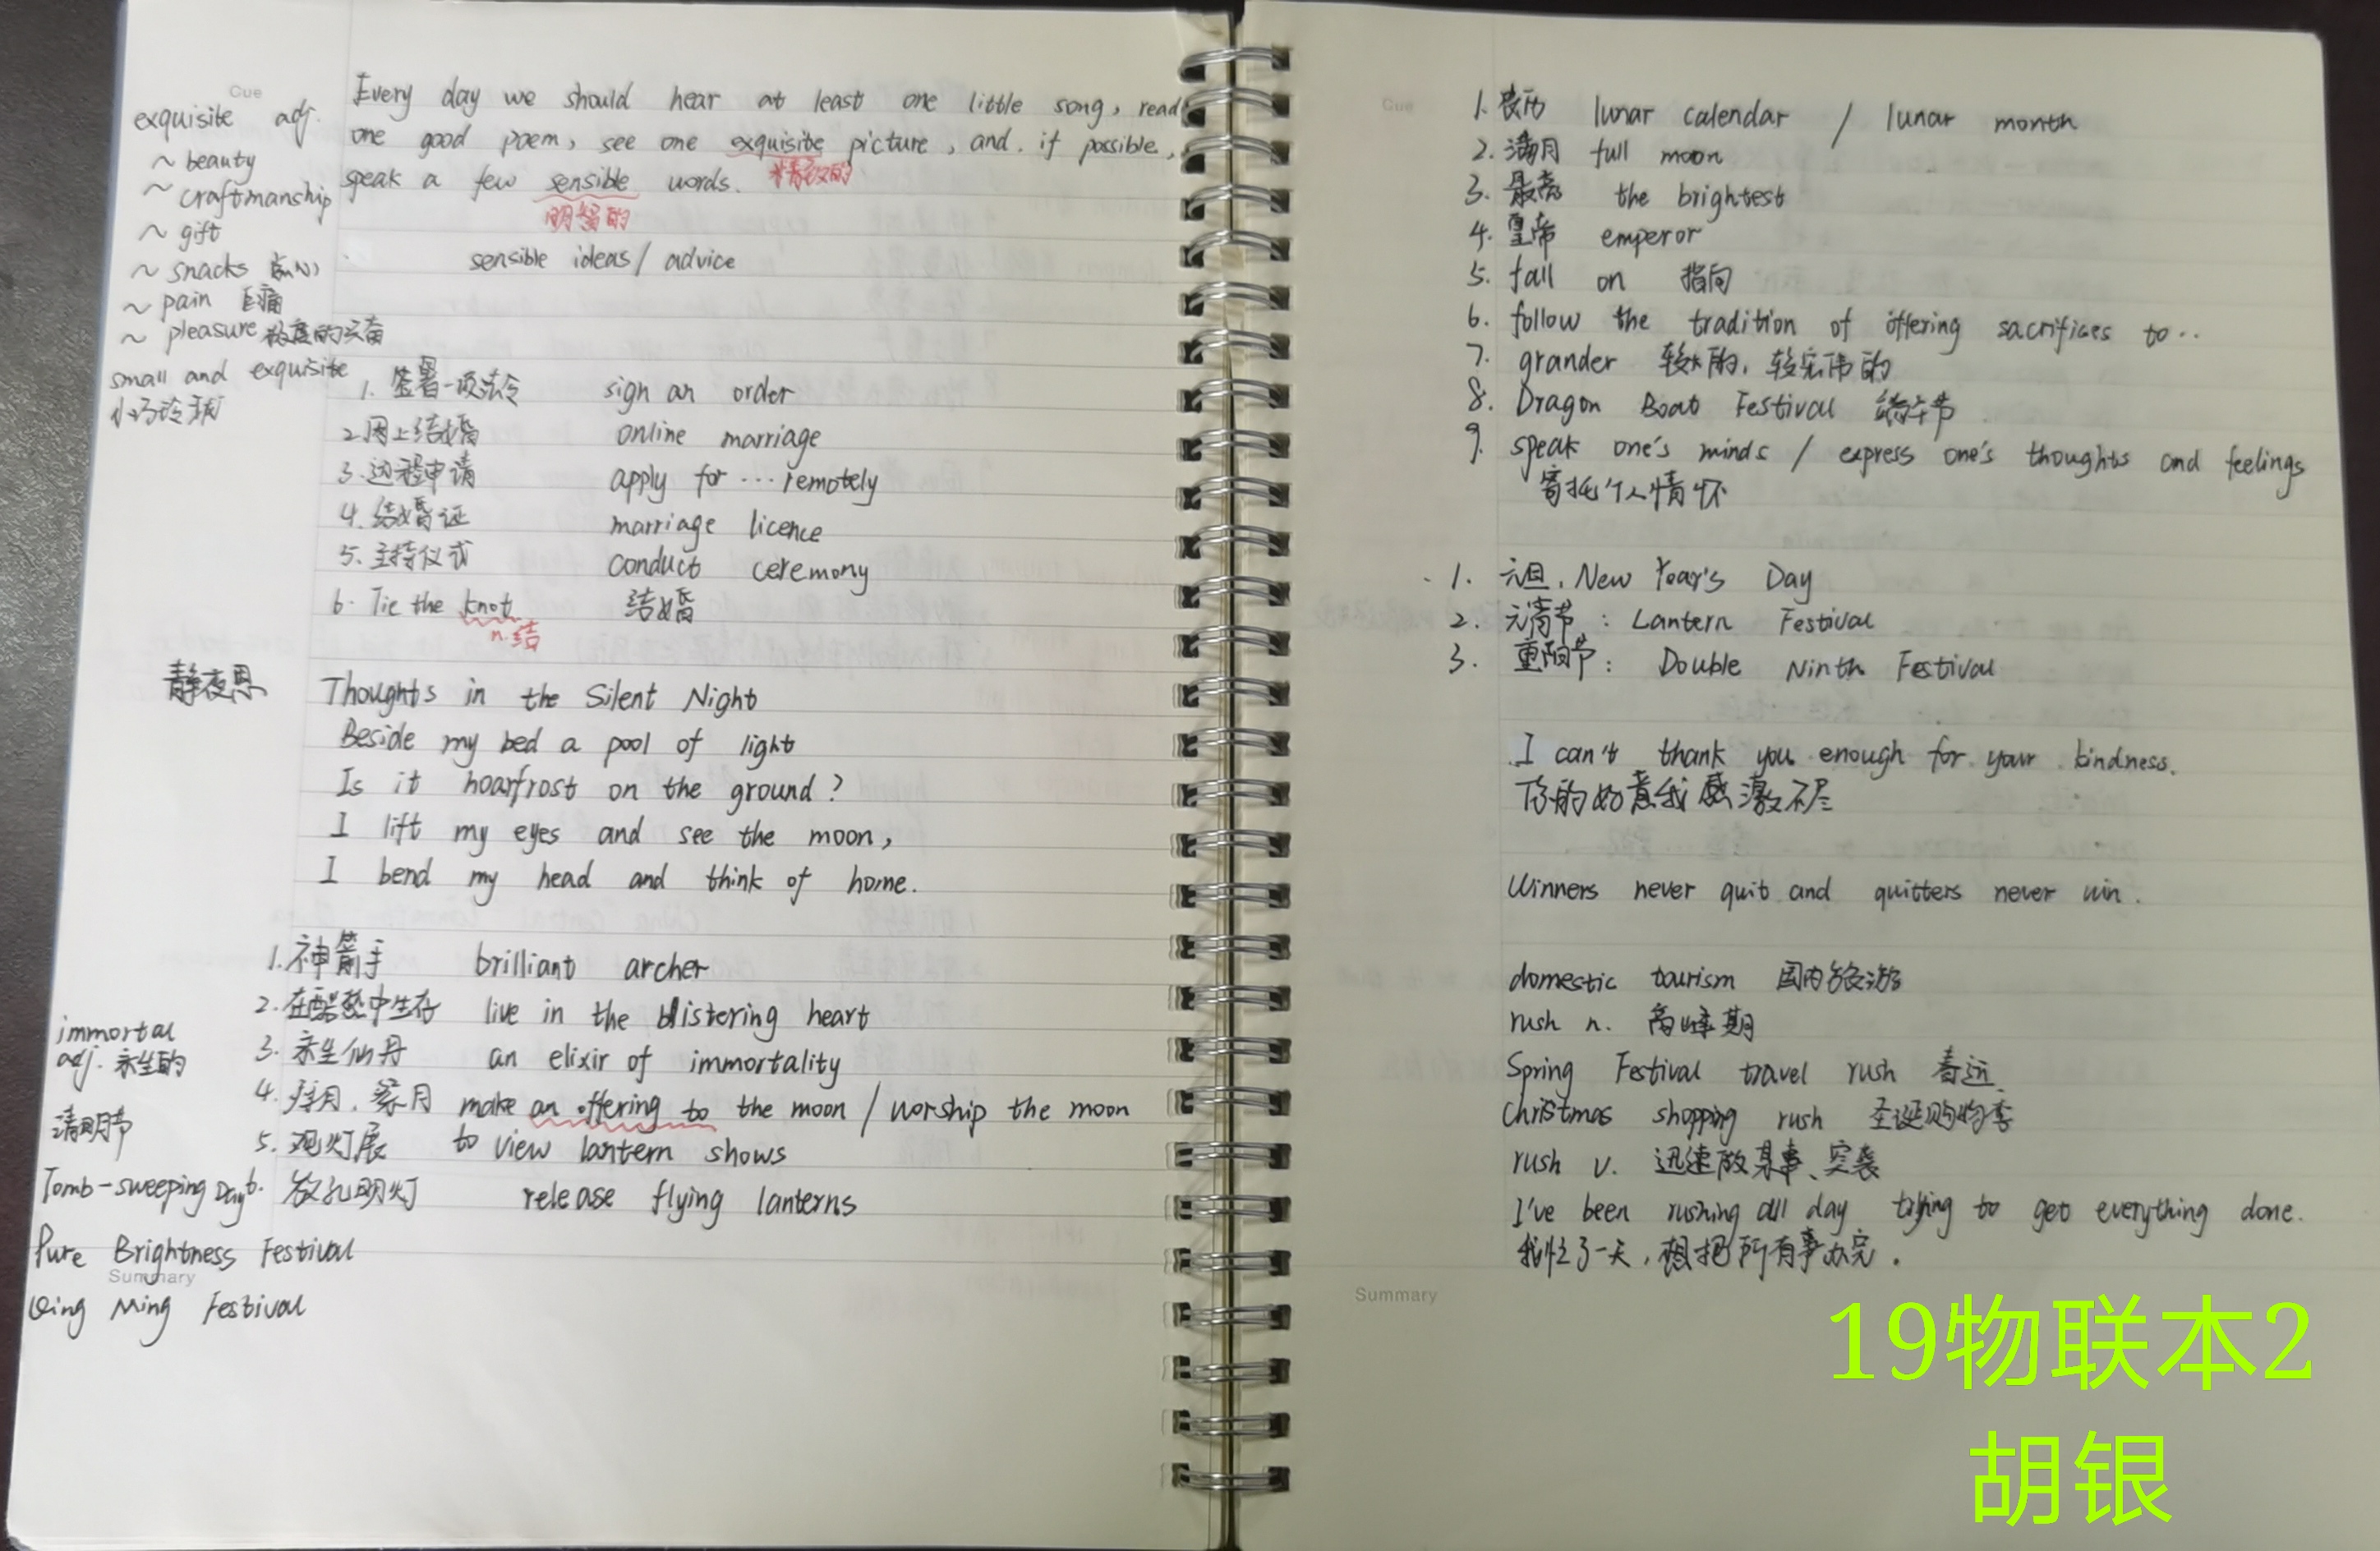 Cue
exquisite adj.
~ beauty
~ craftmanship
~ gift
~ snacks 点心
~ pain 巨痛
~ pleasure 极度的兴奋
small and exquisite
小巧玲珑
Every day we should hear at least one little song, read
one good poem, see one exquisite picture, and, if possible,
speak a few sensible words. 精致的
明智的
sensible ideas / advice
1. 签署一项法令 sign an order
2. 网上结婚 online marriage
3. 远程申请 apply for ... remotely
4. 结婚证 marriage licence
5. 主持仪式 conduct ceremony
6. Tie the knot 结婚
n. 结
静夜思 Thoughts in the Silent Night
Beside my bed a pool of light
Is it hoarfrost on the ground?
I lift my eyes and see the moon,
I bend my head and think of home.
1. 神箭手 brilliant archer
2. 在酷热中生存 live in the blistering heart
3. 永生仙丹 an elixir of immortality
4. 拜月、祭月 make an offering to the moon / worship the moon
5. 观灯展 to view lantern shows
6. 放孔明灯 release flying lanterns
immortal
adj. 永生的
清明节
Tomb-sweeping Day
Pure Brightness Festival
Summary
Qing Ming Festival
Cue
1. 农历 lunar calendar / lunar month
2. 满月 full moon
3. 最亮 the brightest
4. 皇帝 emperor
5. fall on 指向
6. follow the tradition of offering sacrifices to ..
7. grander 较大的, 较宏伟的
8. Dragon Boat Festival 端午节
9. speak one's minds / express one's thoughts and feelings
寄托个人情怀
1. 元旦, New Year's Day
2. 元宵节: Lantern Festival
3. 重阳节: Double Ninth Festival
I can't thank you enough for your kindness.
你的好意我感激不尽
Winners never quit and quitters never win.
domestic tourism 国内旅游
rush n. 高峰期
Spring Festival travel rush 春运
Christmas shopping rush 圣诞购物季
rush v. 迅速做某事、突袭
I've been rushing all day trying to get everything done.
我忙了一天, 想把所有事办完.
Summary
19物联本2
胡银